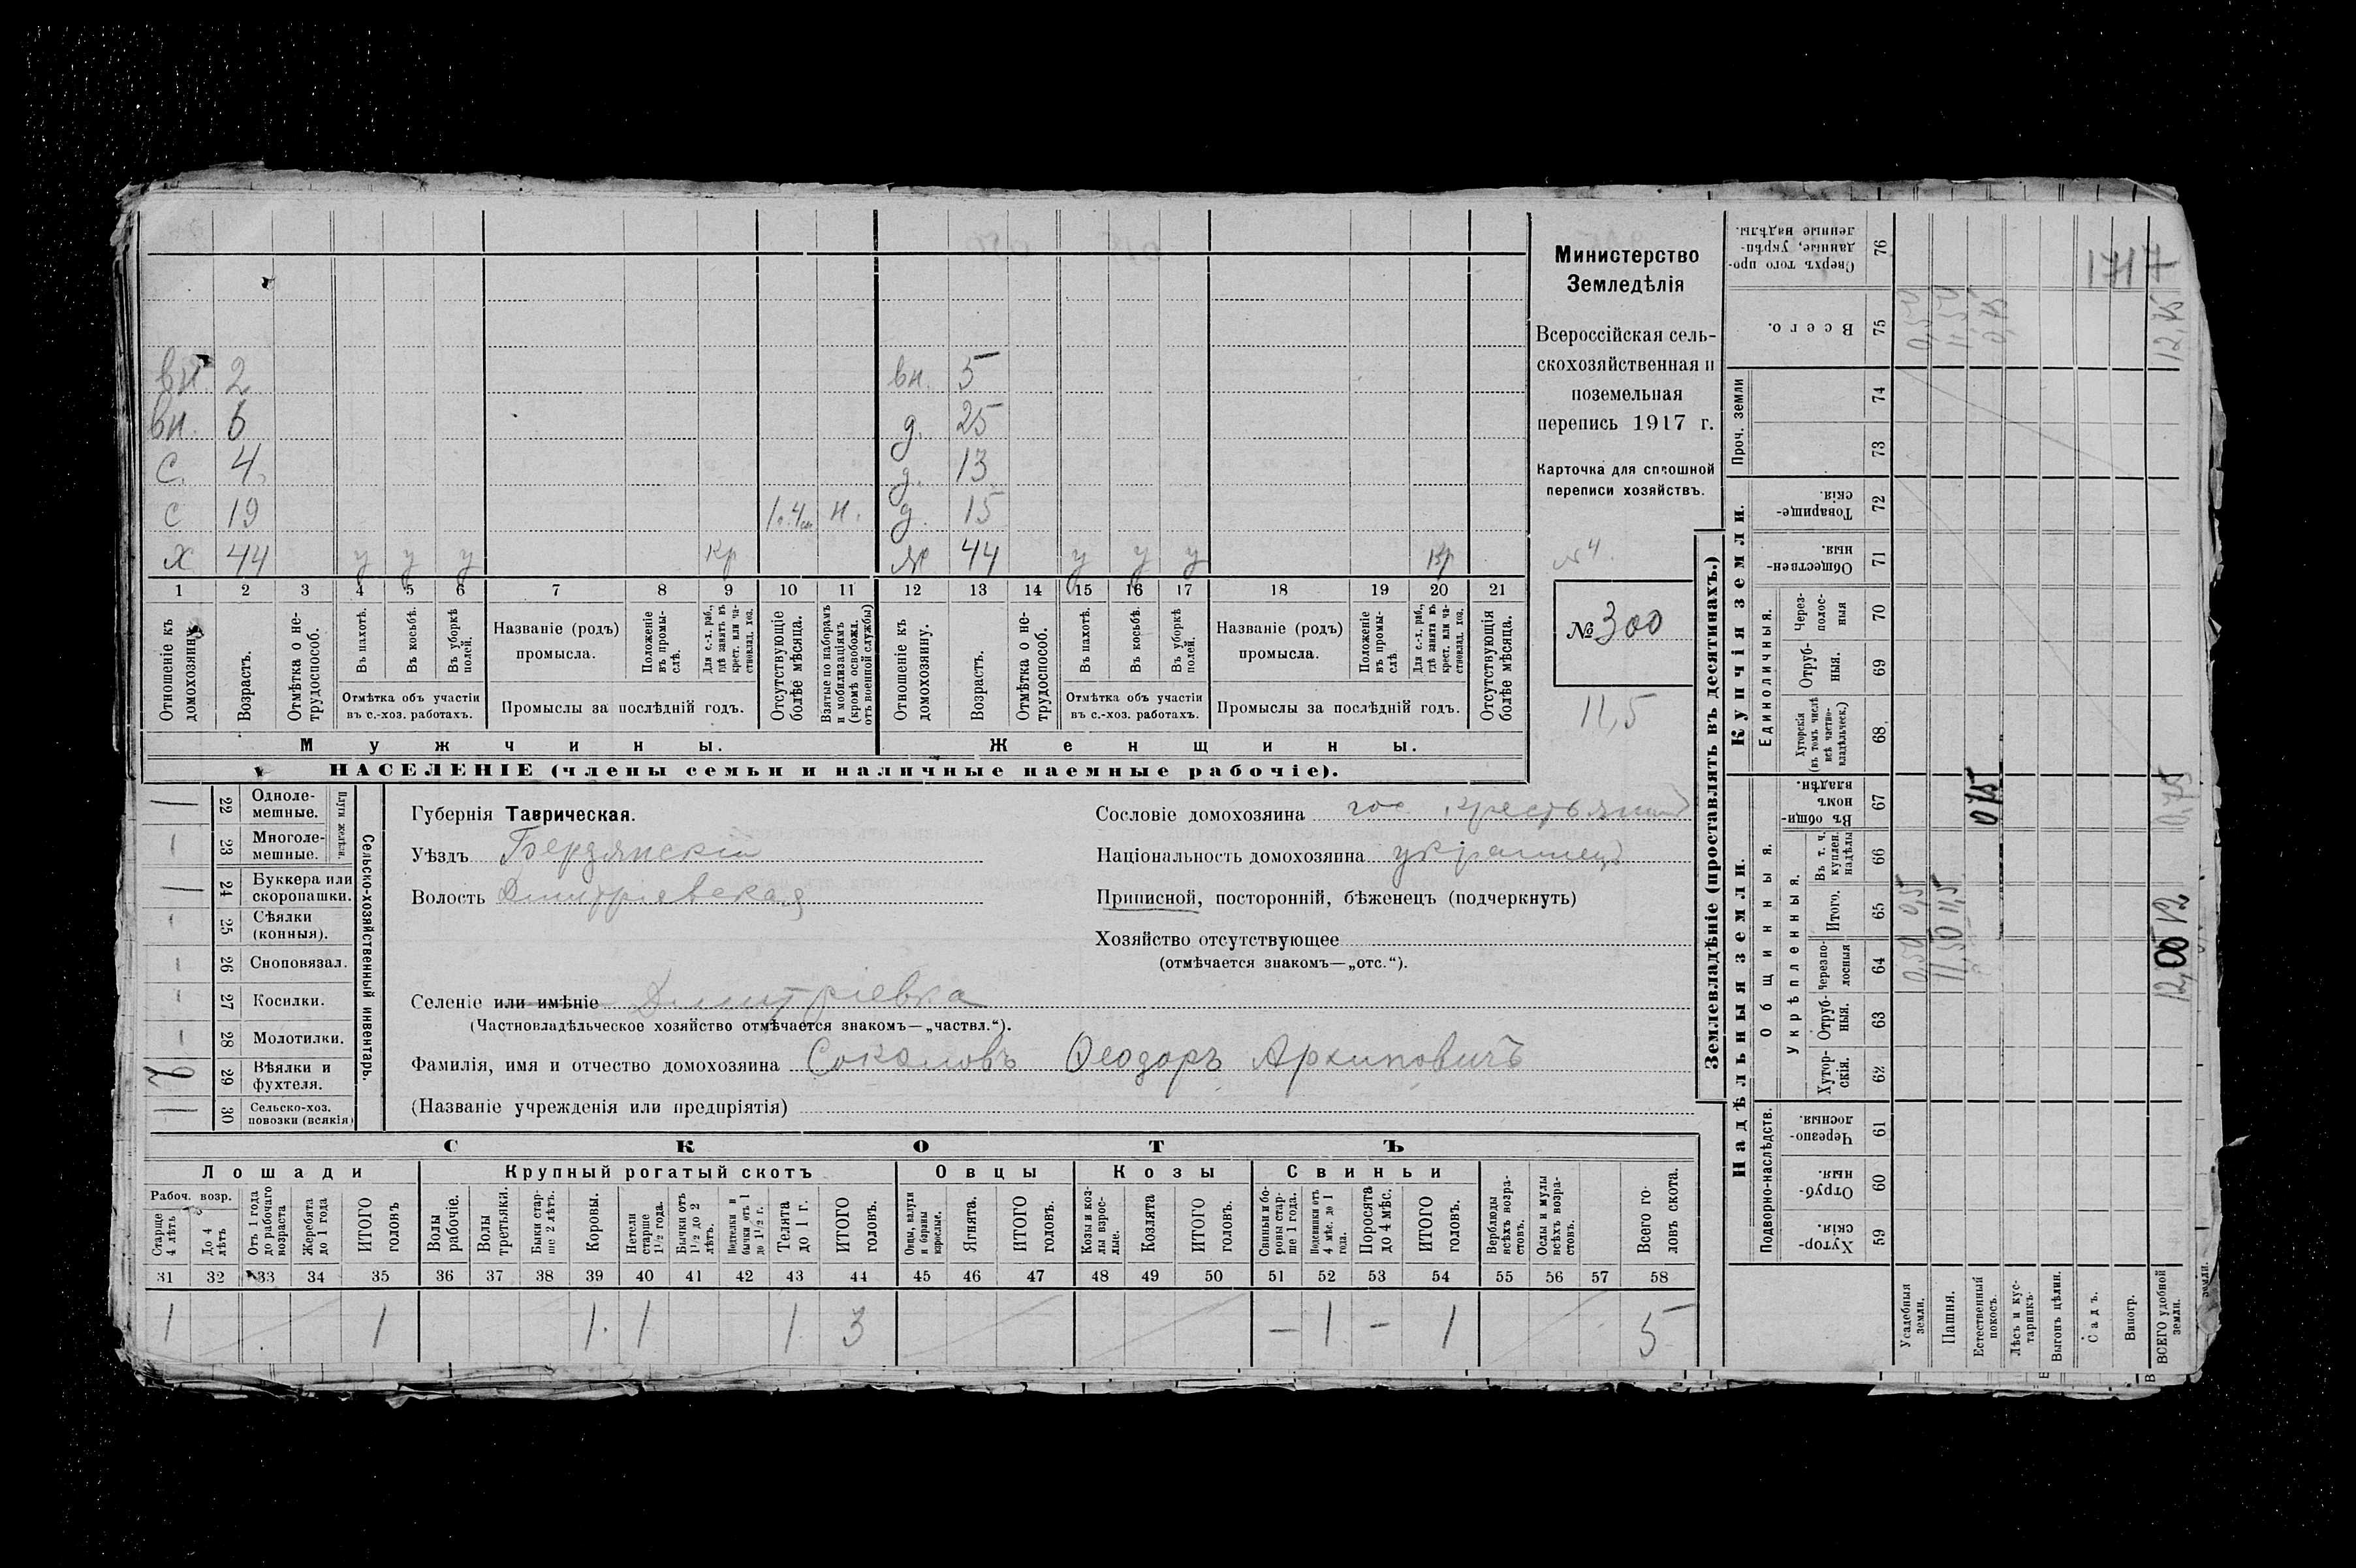 вн. 2 вн. 5
вн. 6 д. 25
с. 4 д. 13
с 19 н. д. 15
х 44 у у у Кр ж 44 у у у Кр
1 2 3 4 5 6 7 8 9 10 11 12 13 14 15 16 17 18 19 20 21
Отношеніе къ домохозяину.
Возрастъ.
Отмѣтка о не-
трудоспособ.
Въ пахотѣ.
Въ косьбѣ.
Въ уборкѣ
полей.
Отмѣтка объ участіи
въ с.-хоз. работахъ.
Названіе (родъ)
промысла.
Положеніе
въ промы-
слѣ.
Для с.-х. раб.,
гдѣ занятъ въ
крест. или ча-
стновлад. хоз.
Промыслы за послѣдній годъ.
Отсутствующіе
болѣе мѣсяца.
Взятые по наборамъ
и мобилизаціямъ
(кромѣ освобожд.
отъ военной службы)
Отношеніе къ
домохозяину.
Возрастъ.
Отмѣтка о не-
трудоспособ.
Въ пахотѣ.
Въ косьбѣ.
Въ уборкѣ
полей.
Отмѣтка объ участіи
въ с.-хоз. работахъ.
Названіе (родъ)
промысла.
Положеніе
въ промы-
слѣ
Для с.-х. раб.,
гдѣ занята въ
крест. или ча-
стновлад. хоз.
Промыслы за послѣдній годъ.
Отсутствующія
болѣе мѣсяца.
Мужчины. Женщины.
НАСЕЛЕНІЕ (члены семьи и наличные наемные рабочіе).
Министерство
Земледѣлія
Всероссійская сель-
скохозяйственная и
поземельная
перепись 1917 г.
Карточка для сплошной
переписи хозяйствъ.
№ 4
№ 300
11,5
22 Одноле-
мешные.
23 Многоле-
мешные.
Плуги желѣзн.
24 Буккера или
скоропашки.
25 Сѣялки
(конныя).
26 Сноповязал.
27 Косилки.
28 Молотилки.
29 Вѣялки и
фухтеля.
30 Сельско-хоз.
повозки (всякія)
Сельско-хозяйственный инвентарь.
Губернія Таврическая.
Уѣздъ Бердянскій
Волость Димитріевская
Сословіе домохозяина гос. крестьянинъ
Національность домохозяина украинецъ
Приписной, посторонній, бѣженецъ (подчеркнуть)
Хозяйство отсутствующее
(отмѣчается знакомъ—„отс.“).
Селеніе или имѣніе Димитріевка
(Частновладѣльческое хозяйство отмѣчается знакомъ—„частвл.“).
Фамилія, имя и отчество домохозяина Соколовъ Ѳеодоръ Архиповичъ
(Названіе учрежденія или предпріятія)
СКОТЪ
Лошади Крупный рогатый скотъ Овцы Козы Свиньи
Рабоч. возр.
Старше
4 лѣтъ
До 4
лѣтъ
Отъ 1 года
до рабочаго
возраста
Жеребята
до 1 года
ИТОГО
головъ
Волы
рабочіе.
Волы
третьяки.
Быки стар-
ше 2 лѣтъ.
Коровы.
Нетели
старше
1½ года.
Бычки отъ
1½ до 2
лѣтъ.
Подтелки и
бычки отъ 1
до 1½ г.
Телята
до 1 г.
ИТОГО
головъ.
Овцы, валухи
и бараны
взрослые.
Ягнята.
ИТОГО
головъ.
Козы и коз-
лы взрос-
лые.
Козлята
ИТОГО
головъ.
Свиньи и бо-
ровы стар-
ше 1 года.
Подсвинки отъ
4 мѣс. до 1
года.
Поросята
до 4 мѣс.
ИТОГО
головъ.
Верблюды
всѣхъ возра-
стовъ.
Ослы и мулы
всѣхъ возра-
стовъ.
Всего го-
ловъ скота.
31 32 33 34 35 36 37 38 39 40 41 42 43 44 45 46 47 48 49 50 51 52 53 54 55 56 57 58
1 1 1. 1 1 3 – 1 – 1 5
Землевладѣніе (проставлять въ десятинахъ.)
Купчія земли.
Надѣльныя земли.
Сверхъ того про-
данные, укрѣп-
ленные надѣлы.
76
Всего.
75
Проч. земли
74
73
Товарище-
скія.
72
Обществен-
ныя.
71
Единоличныя.
Через-
полос-
ныя
70
Отруб-
ныя.
69
Хуторскія
(въ томъ числѣ
всѣ частно-
владѣльческ.)
68
Общинныя.
Въ общи-
номъ
владѣн.
67
Укрѣпленныя.
Въ т. ч.
куплен.
надѣлы
66
Итого.
65
Черезпо-
лосныя
64
Отруб-
ныя.
63
Хутор-
скія.
62
Подворно-наслѣдств.
Черезпо-
лосныя.
61
Отруб-
ныя.
60
Хутор-
скія.
59
Усадебныя
земли.
0,50 0,5 0,50
Пашня.
11,50 11,5 11,50
Естественный
покосъ.
0,75
Лѣсъ и кус-
тарникъ.
Выгонъ цѣлин.
Садъ.
Виногр.
ВСЕГО удобной
земли.
12,00 12 0,75
1717